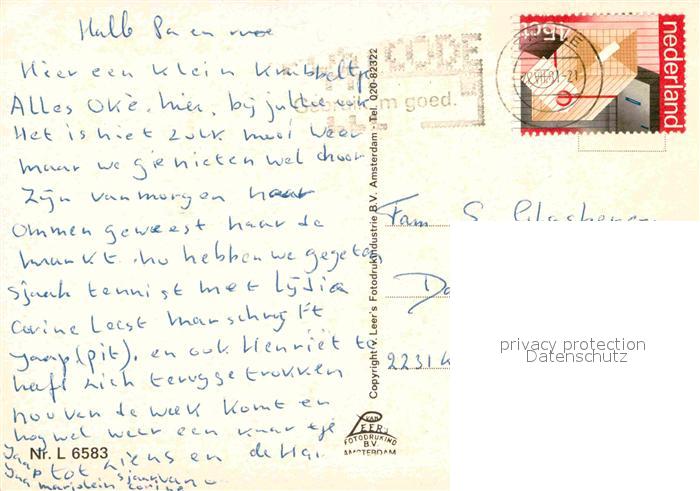 Hallo Pa en moe
Hier een klein krabbeltje
Alles Okè. hier, bij jullie ook
Het is niet zulk mooi weer
maar we genieten wel door
Zijn vanmorgen naar
Ommen geweest naar de
markt. nu hebben we gegeten
Sjaak tennist met Lydia
Corine Leest
Jaap (pit). en ook Henriët te
heft zich teruggetrokken
nou van de week komt en
nog wel weer een kaartje
Jaap tot ziens en de Ha.
marjolein Corine
Nr. L 6583
CODE
goed.
Copyright v. Leer's Fotodrukindustrie B.V. Amsterdam - Tel. 020-82322
VAN
LEER'S
FOTODRUKIND
B.V.
AMSTERDAM
45ct
nederland
Fam S.
2231 K
privacy protection
Datenschutz